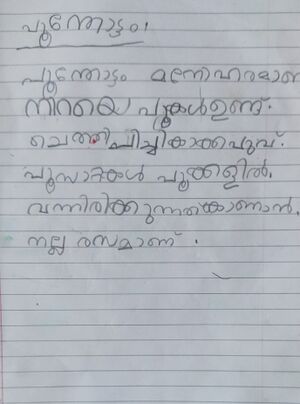 പൂന്തോട്ടം.
പൂന്തോട്ടം മനോഹരമാണ
നിറയെ പൂകൾഉണ്ട്.
ചെത്തി, പിച്ചി
പൂമ്പാറ്റകൾ പൂക്കളിൽ.
വന്നിരിക്കുന്നതകൊണാൻ.
നല്ല രസമാണ് .